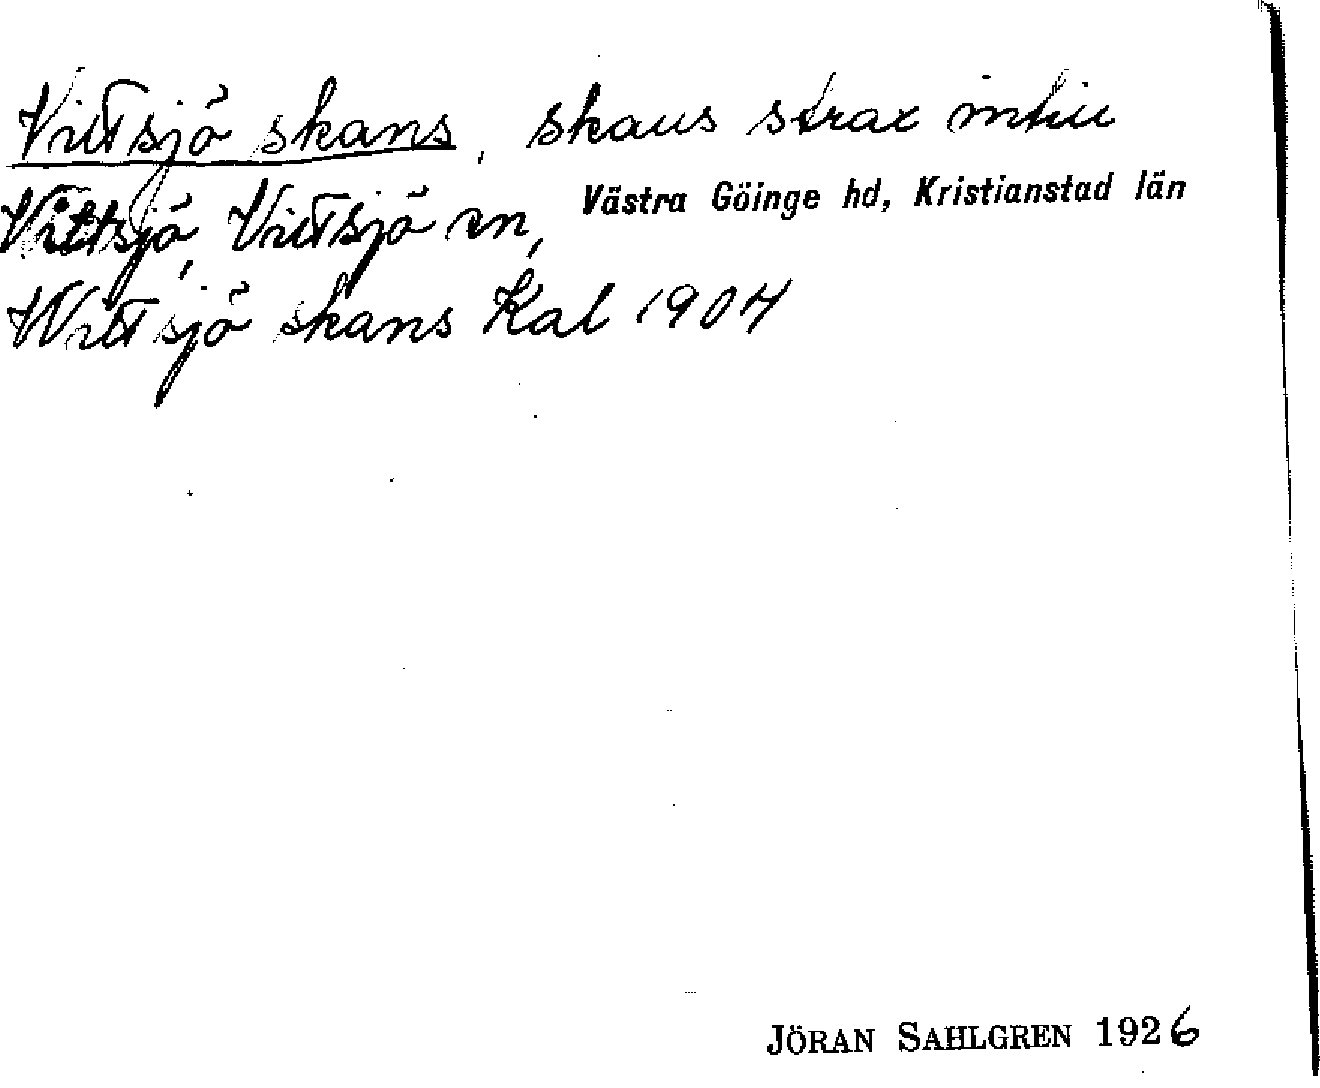 Vittsjö skans, skans strax intill
Vittsjö, Vittsjö sn, Västra Göinge hd, Kristianstad län
Wittsjö skans Kal 1904
JÖRAN SAHLGREN 1926